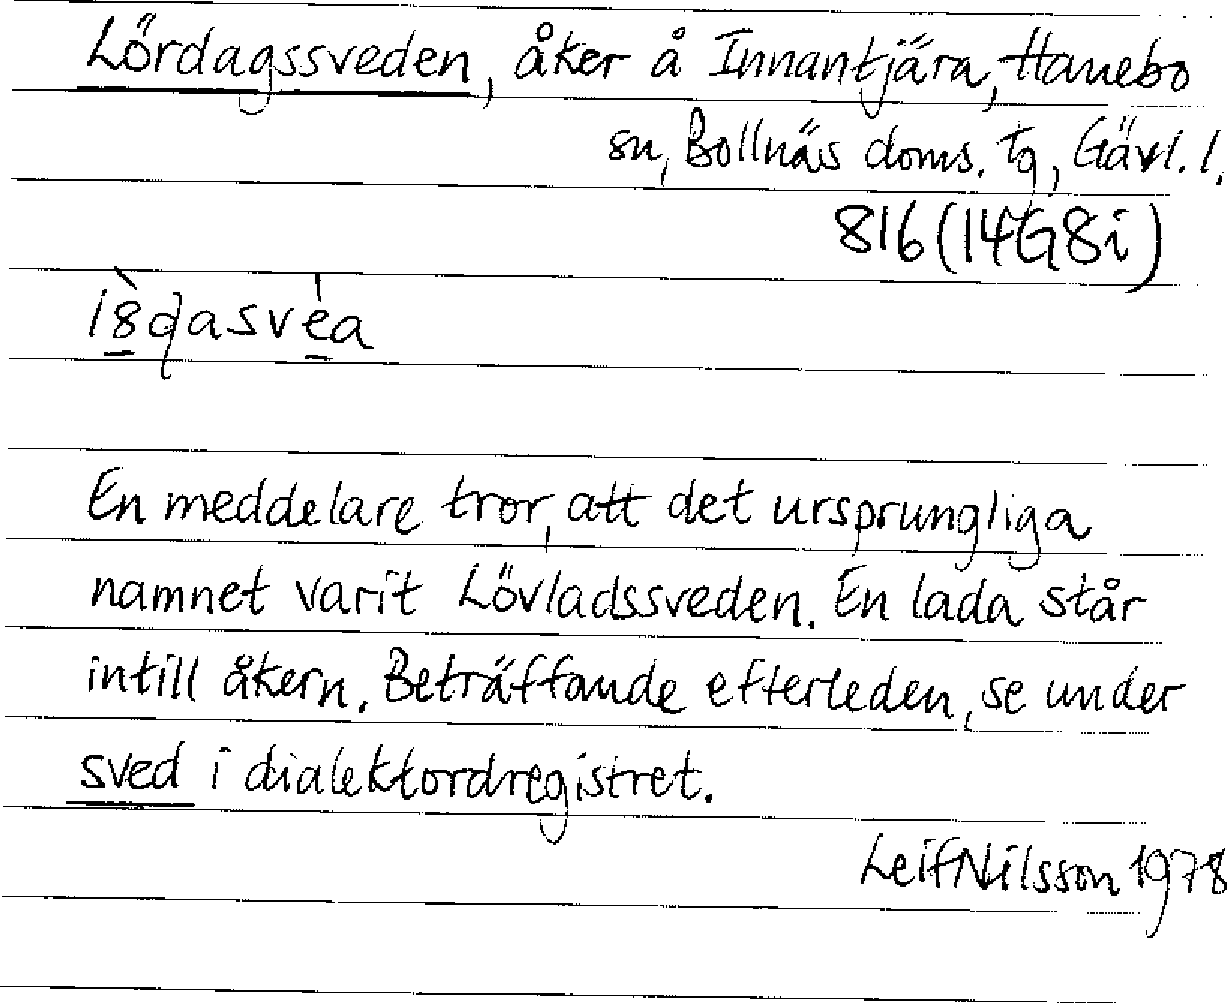 Lördagssveden, åker å Innantjära, Hanebo
sn, Bollnäs doms. tg, Gävl. l.
816 (14G8i)
En meddelare tror, att det ursprungliga
namnet varit Lövladssveden. En lada står
intill åkern. Beträffande efterleden, se under
sved i dialektordregistret.
Leif Nilsson 1978